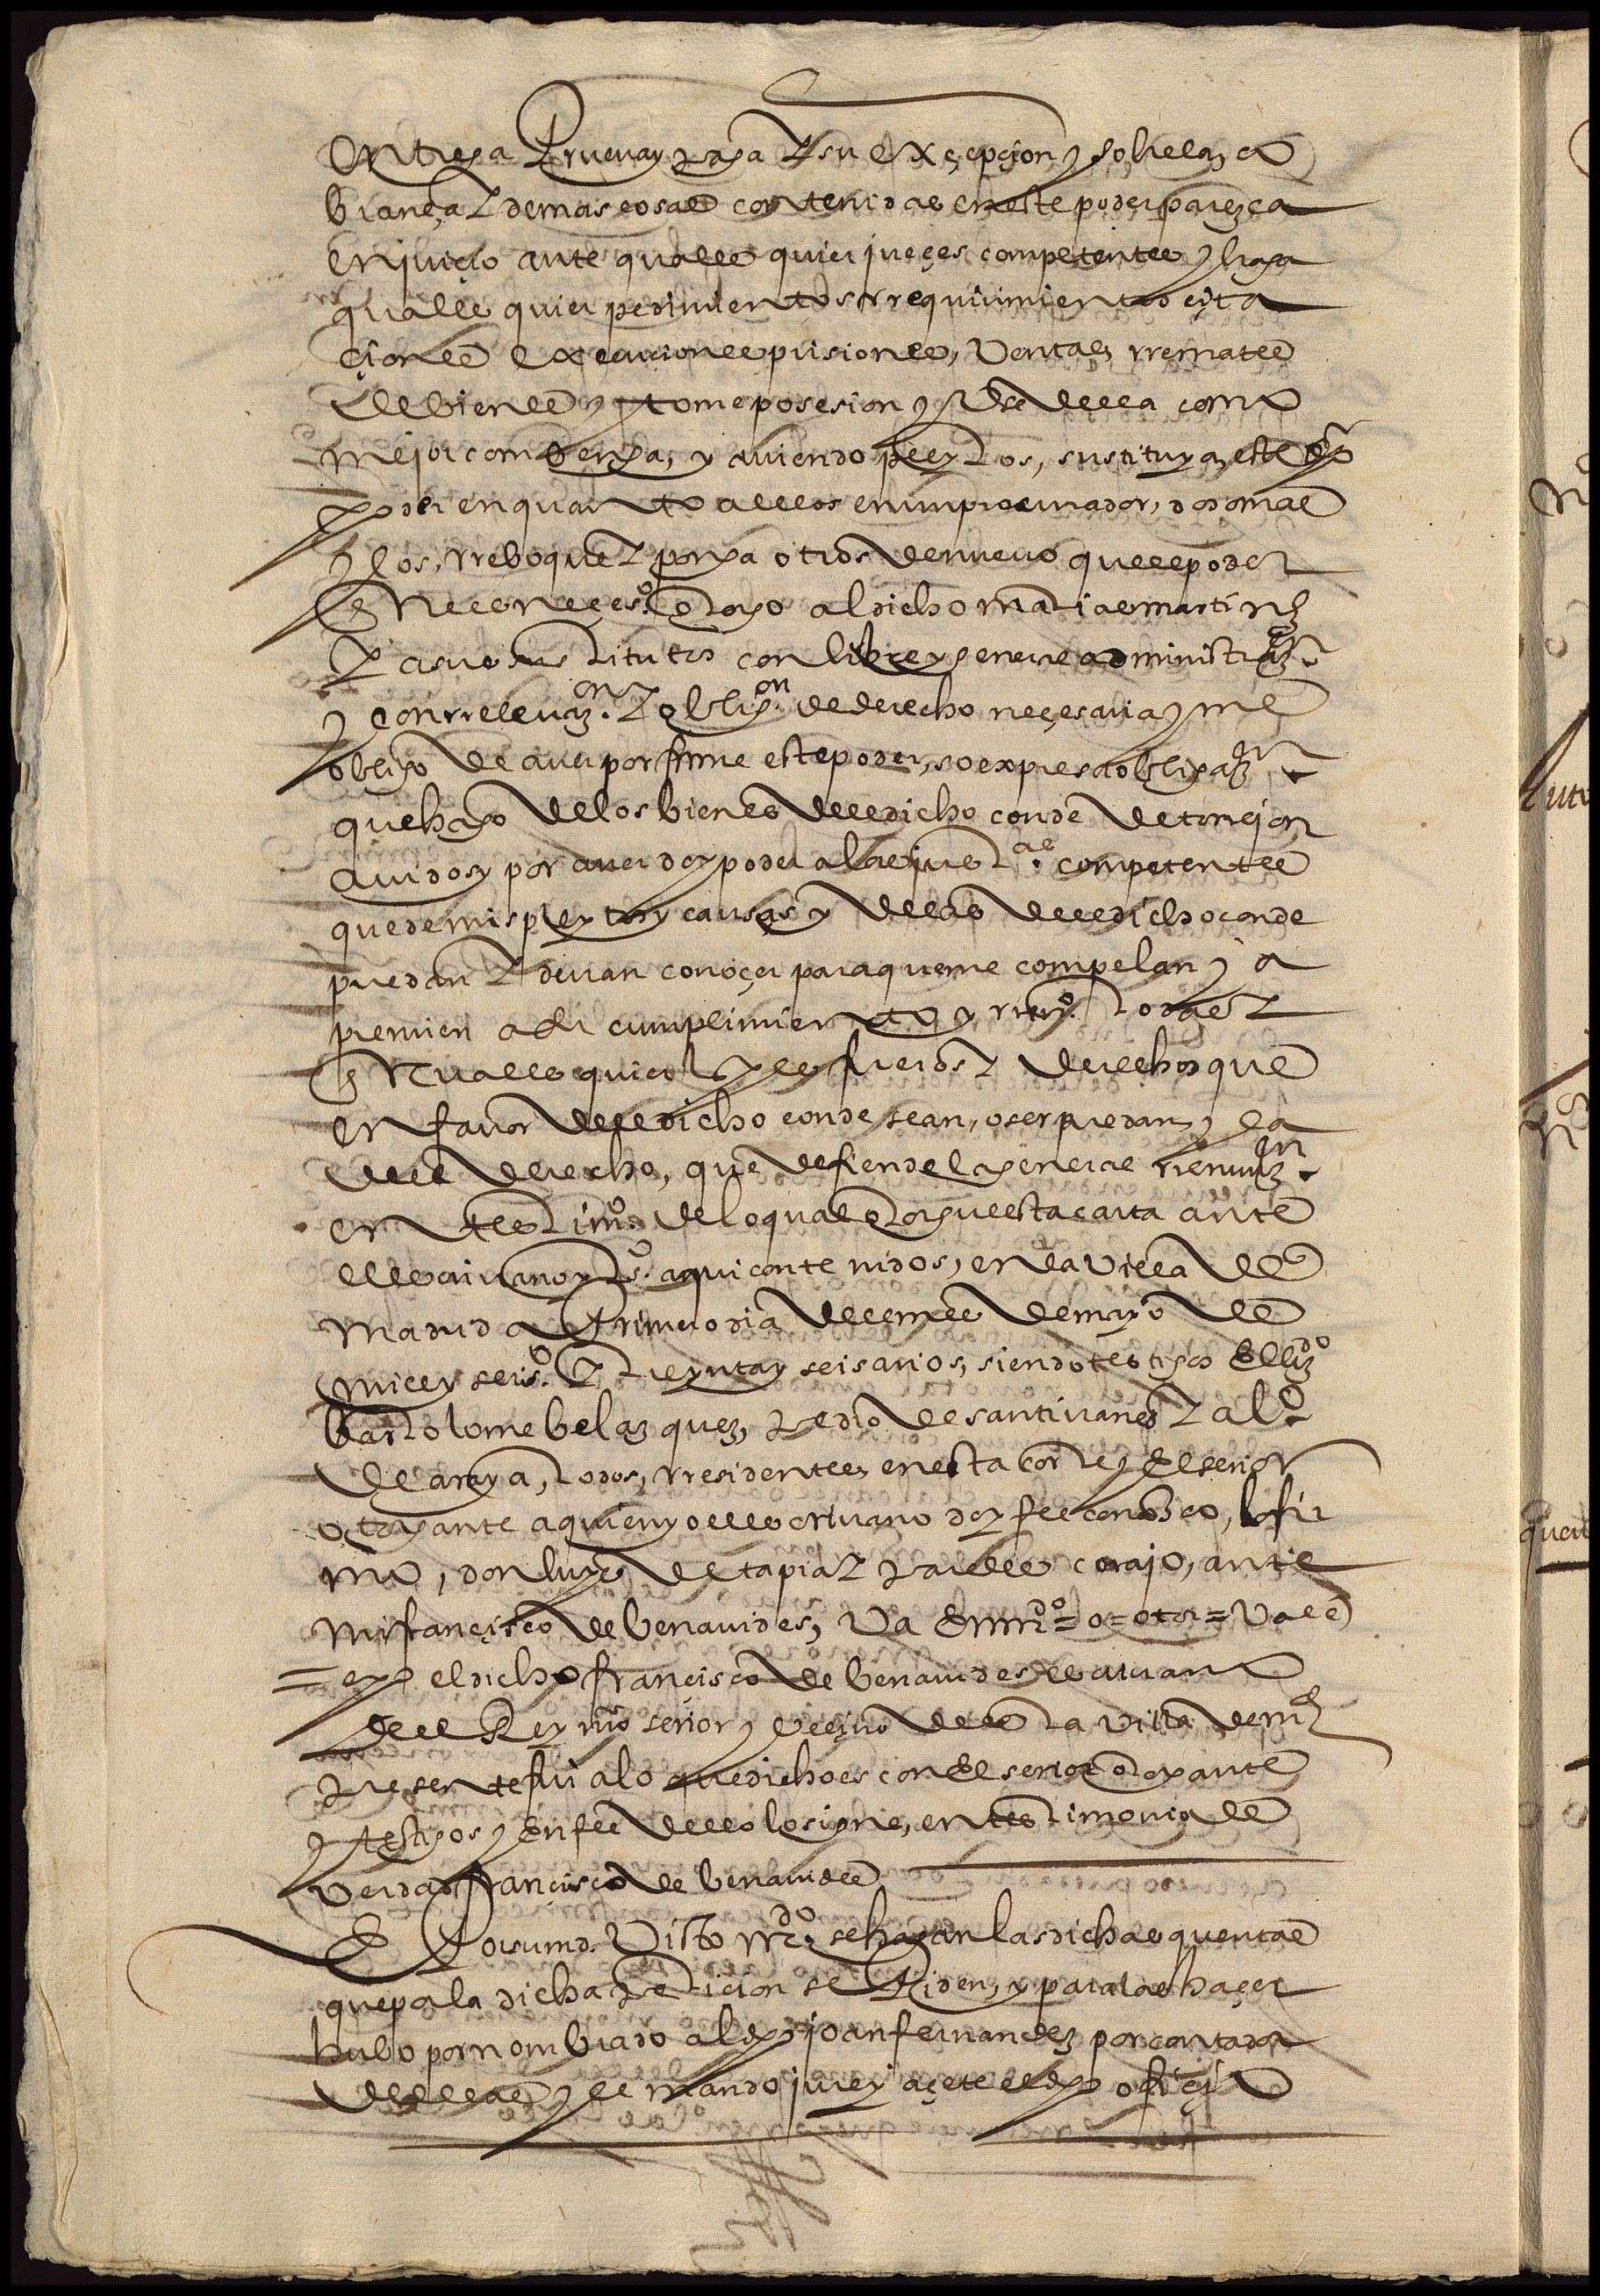 entrega prueva y paga y su excepçion y sobre la co
brança y demas cosas contenidas en este poder parezca
en juiçio ante quales quier jueçes competentes y haga
quales quier pedimientos rrequirimientos çita
çiones execuciones prisiones, ventas, rremates
de bienes y tome posesion y use della como
mejor conbenga, y aviendo pleytos, sustituya este dho
poder en quanto a ellos en un procurador, dos o mas
y los rreboque y ponga otros de nuevo que el poder
que es neçess.o otorgo al dicho matias martinz
y a sus sustitutos con libre y general administraz.on
y con rrelevaz.on y oblig.on de derecho neçesaria y me
obligo de aver por firme este poder, so expresa obligaz.on
que hago de los bienes del dicho conde de torrejon
avidos y por aver doy poder a las just.as competentes
que de mis pleytos y causas y de las del dicho conde
puedan y devan conoçer para que me compelan y a
premien a su cumplimiento y rren.o todas y
quales quier leyes fueros y derechos que
en favor del dicho conde sean, o ser puedan, y la
del derecho, que defiende la general rrenunz.on
en testim.o de lo qual otorgue esta carta ante
el escrivano y ts.o aqui contenidos, en la villa de
Madrid a primero dia del mes de mayo de
mil y seis.o y treynta y seis años, siendo testigos el liz.do
bartolome belazquez, pedro de santivanes y al.o
de araya, todos, rresidentes en esta corte y el señor
otorgante a quien yo el escrivano doy fee conozco, lo fir
mo, don luys de tapia y paredes corajo, ante
mi françisco de benavides, va enm.do = o = otor = vale
= e yo el dicho françisco de benavides escrivano
del Rey nro señor y veçino desta villa de md
presente fui a lo que dicho es con el señor otorgante
y testigos y en fee dello lo signe, en testimonio de
verdad françisco de benavides
E por su md. visto m.do se hagan las dichas quentas
que por la dicha petiçion se piden, y para las haçer
hubo por nombrado al dho joan fernandez por contador
dellas y le mando jure y açete el dho ofiçio